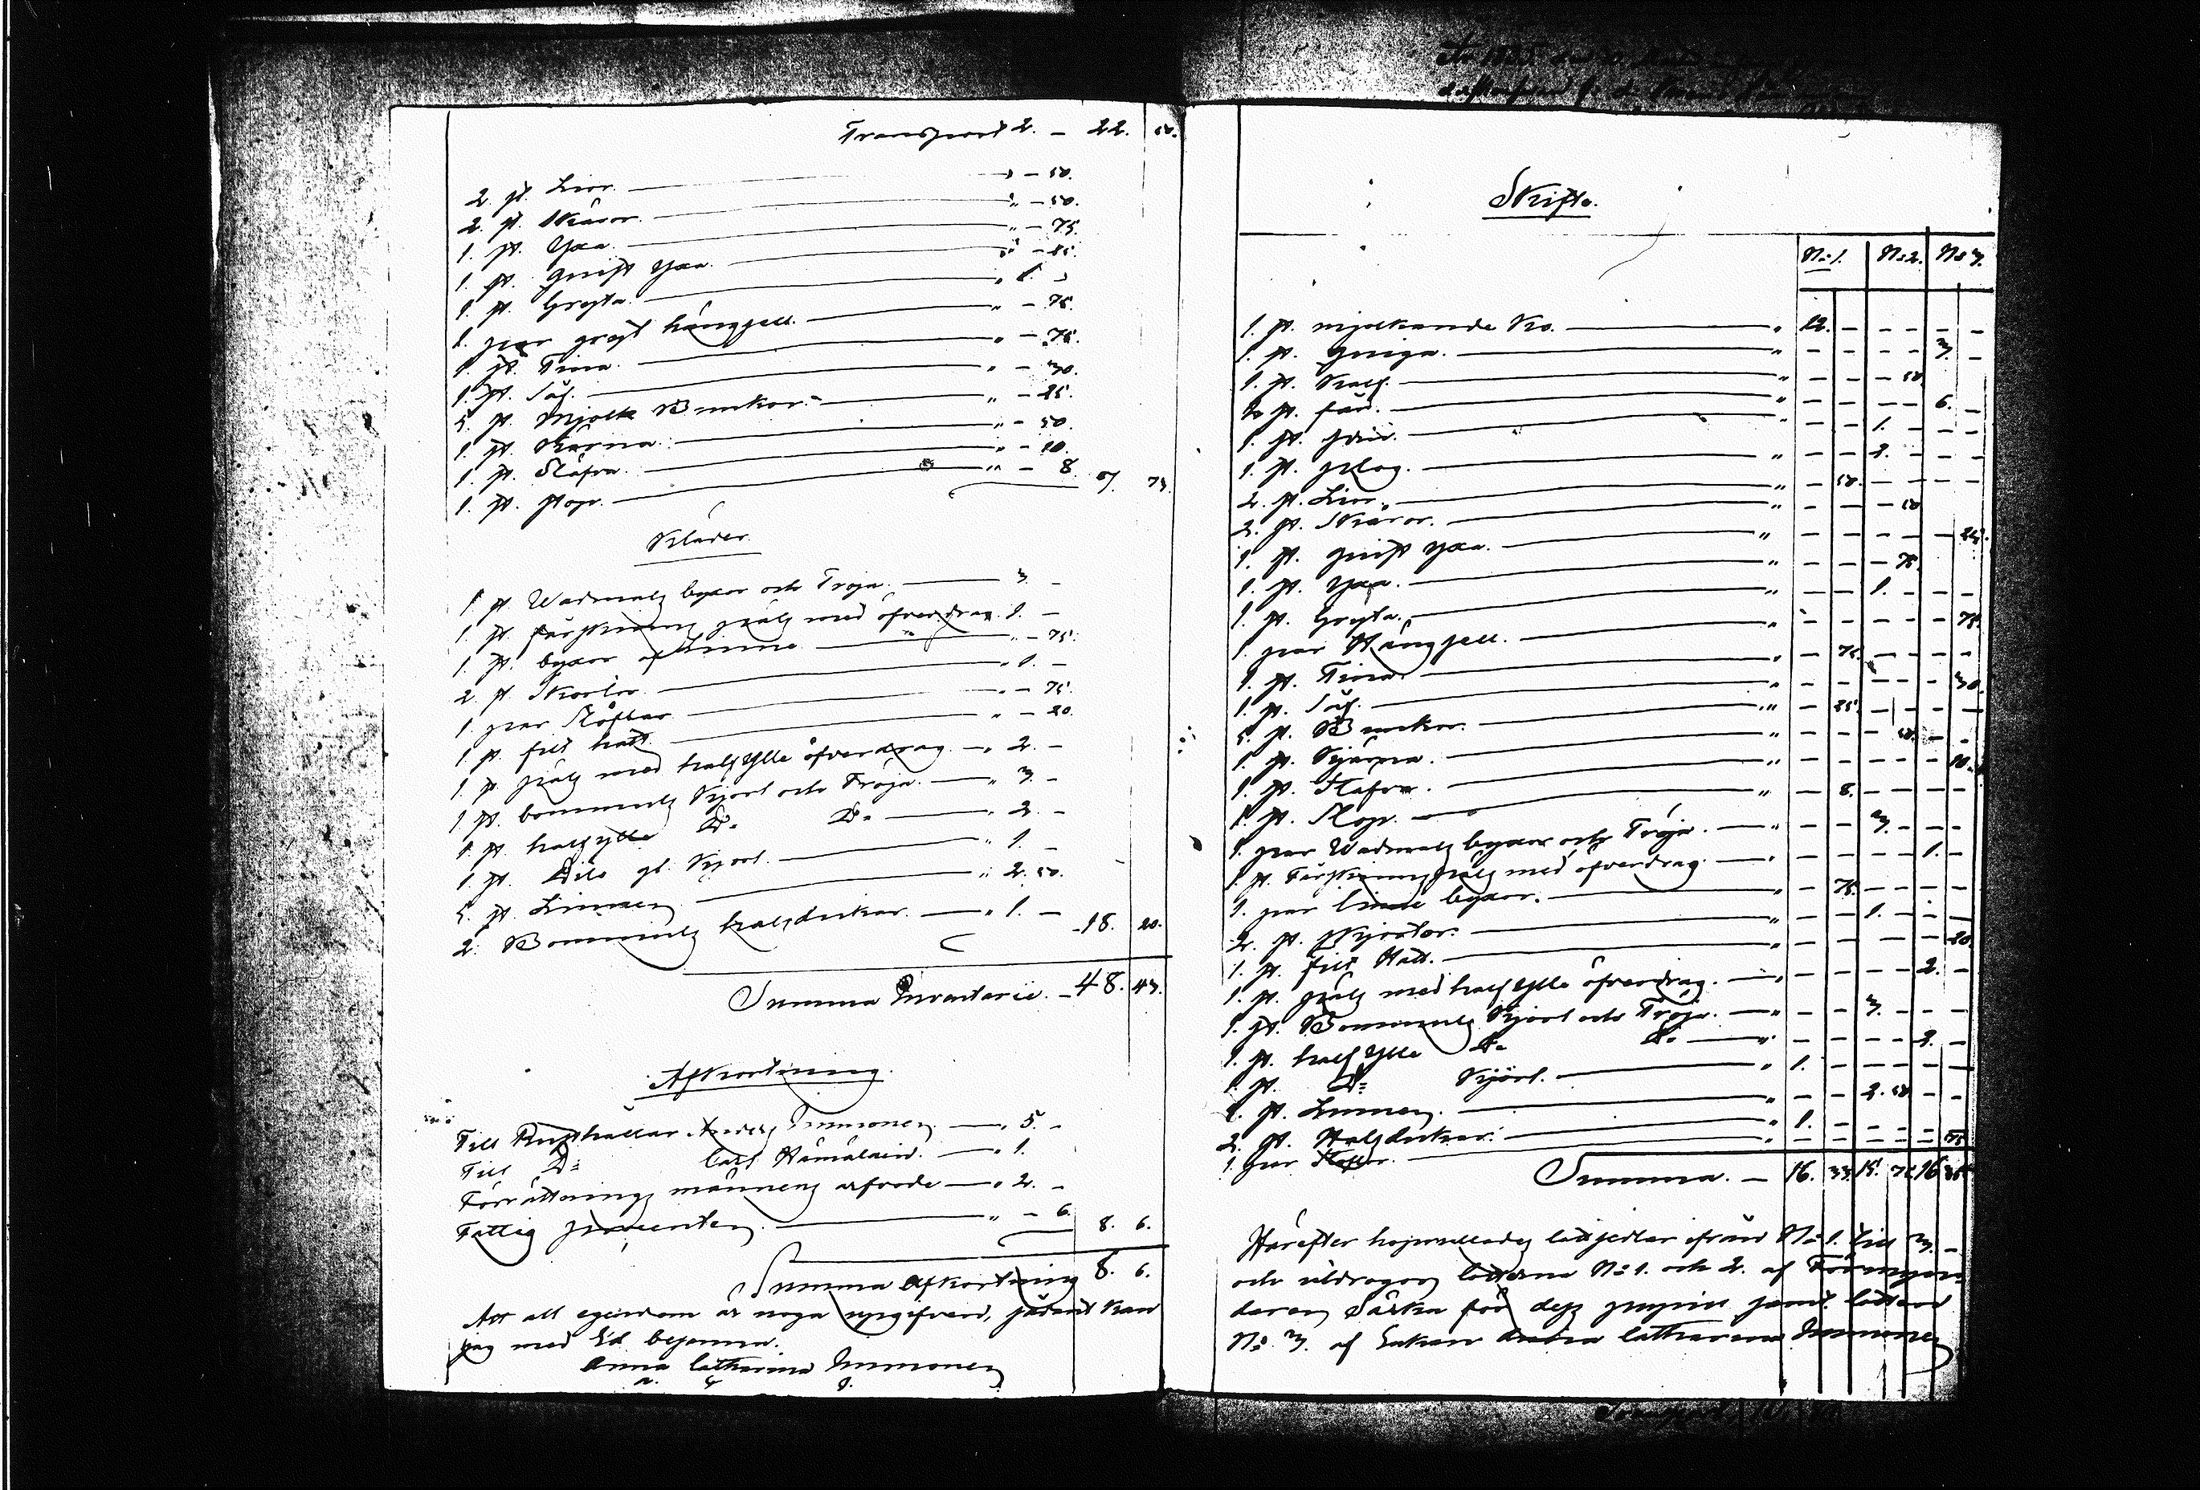 Transport 2. — 22. 50.
2. st. Lior. — " — 50.
2. st. Skäror. — " — 50.
1. st. Yxa. — " — 75.
1. st. Yxa. — " — 25.
1. st. Gryta. — " 1. "
1. par gryt hängjell. — " — 75.
1. st. Tina. — " — 75.
1. st. Såg. — " — 30.
5. st. Mjölk Bunkar. — " — 25.
1. st. Kärna. — " — 50.
1. st. Stäfva. — " — 10.
1. st. Stop. — " — 8. 7. 73.
Kläder.
1 st Wadmals byxor och Tröja. — 3. —
1. st. fårskinns päls med öfverdrag. 1. —
1. st. byxor af Linne — " — 75.
2. st Skortor. — " 1. —
1 par Stöflar — " — 75.
1 st. filt hatt — " — 20.
1. st päls med halfylle öfverdrag. — " 2. —
1 st. bommuls Kjorl och Tröja. — " 3. —
1. st. halfylle D:o D:o — " 2. —
1. st. Dito gl. Kjorl. — " 1. —
5. st. Linnen — " 2. 50.
2. Bommuls halsdukar. — " 1. — 18. 20.
Summa Inventarii. — 48. 43.
Afkortning.
Till Rusthållar Anders Immonen — " 5. —
Till D:o Carl Hämäläin. — " 1.
Förrättnings männens arfvode — " 2. —
Fattig procenten. — " — 6. 8. 6.
Summa Afkortning 8. 6.
Att all egendom är noga upgifven, sådant kan
jag med Ed bejanna.
Anna Catharina Immonen
Skifte.
N:o 1. N:o 2. N:o 3.
1. st. mjolkande Ko. — " 12. — — — — —
1. st. qviga. — " — — — — 3. —
1. st. Kalf. — " — — — 50.
2. st. får. — " — — — — 6. —
1. st. — " — — 1. — — —
1. st. plog. — " — — 2. — — —
2. st. Lior. — " — 50. — — — —
2. st. Skäror. — " — — — 50
1. st. Yxa. — " — — — — — 25.
1. st. Yxa. — " — — — 75.
1. st. Gryta. — " — — 1. — — —
1. par Hängjell. — " — — — — — 75.
1. st. Tina. — " — 75. — — — —
1. st. Såg. — " — — — — — 30.
5. st. Bunkar. — " — 25. — — — —
1. st. Kjärna. — " — — — 50. — —
1. st. Stäfva. — " — — — — — 10.
1. st. Stop. — " — 8. — — — —
1. par Wadmals byxor och Tröja. — " — — 3. — — —
1. st. Fårskinns päls med öfverdrag. — " — — — — 1. —
1. par linne byxor. — " — 75. — — — —
2. st. Skjortor. — " — — 1. — — —
1. st. filt Hatt. — " — — — — — 20.
1. st. päls med halfylle öfverdrag. — " — — — — 2. —
1. st. Bommuls Kjorl och Tröja. — " — — 3. — — —
1. st. halfylle D:o D:o — " — — — — 2. —
1. st. D:o Kjörl. — " 1. — — — — —
5. st. Linnen. — " — — 2. 50 — —
2. st. Halsdukar. — " 1. — — — — —
1. par Stöflar. — " — — — — — 75
Summa. — 16. 33. 15. 75. 16. 35.
Härefter lottsedlar ifrån N:o 1. till 3. —
och utdrogos lotterna N:o 1. och 2. af Förmyn-
daren Särka för dess pupill samt lotten
N:o 3. af Enkan Anna Catharina Immonen